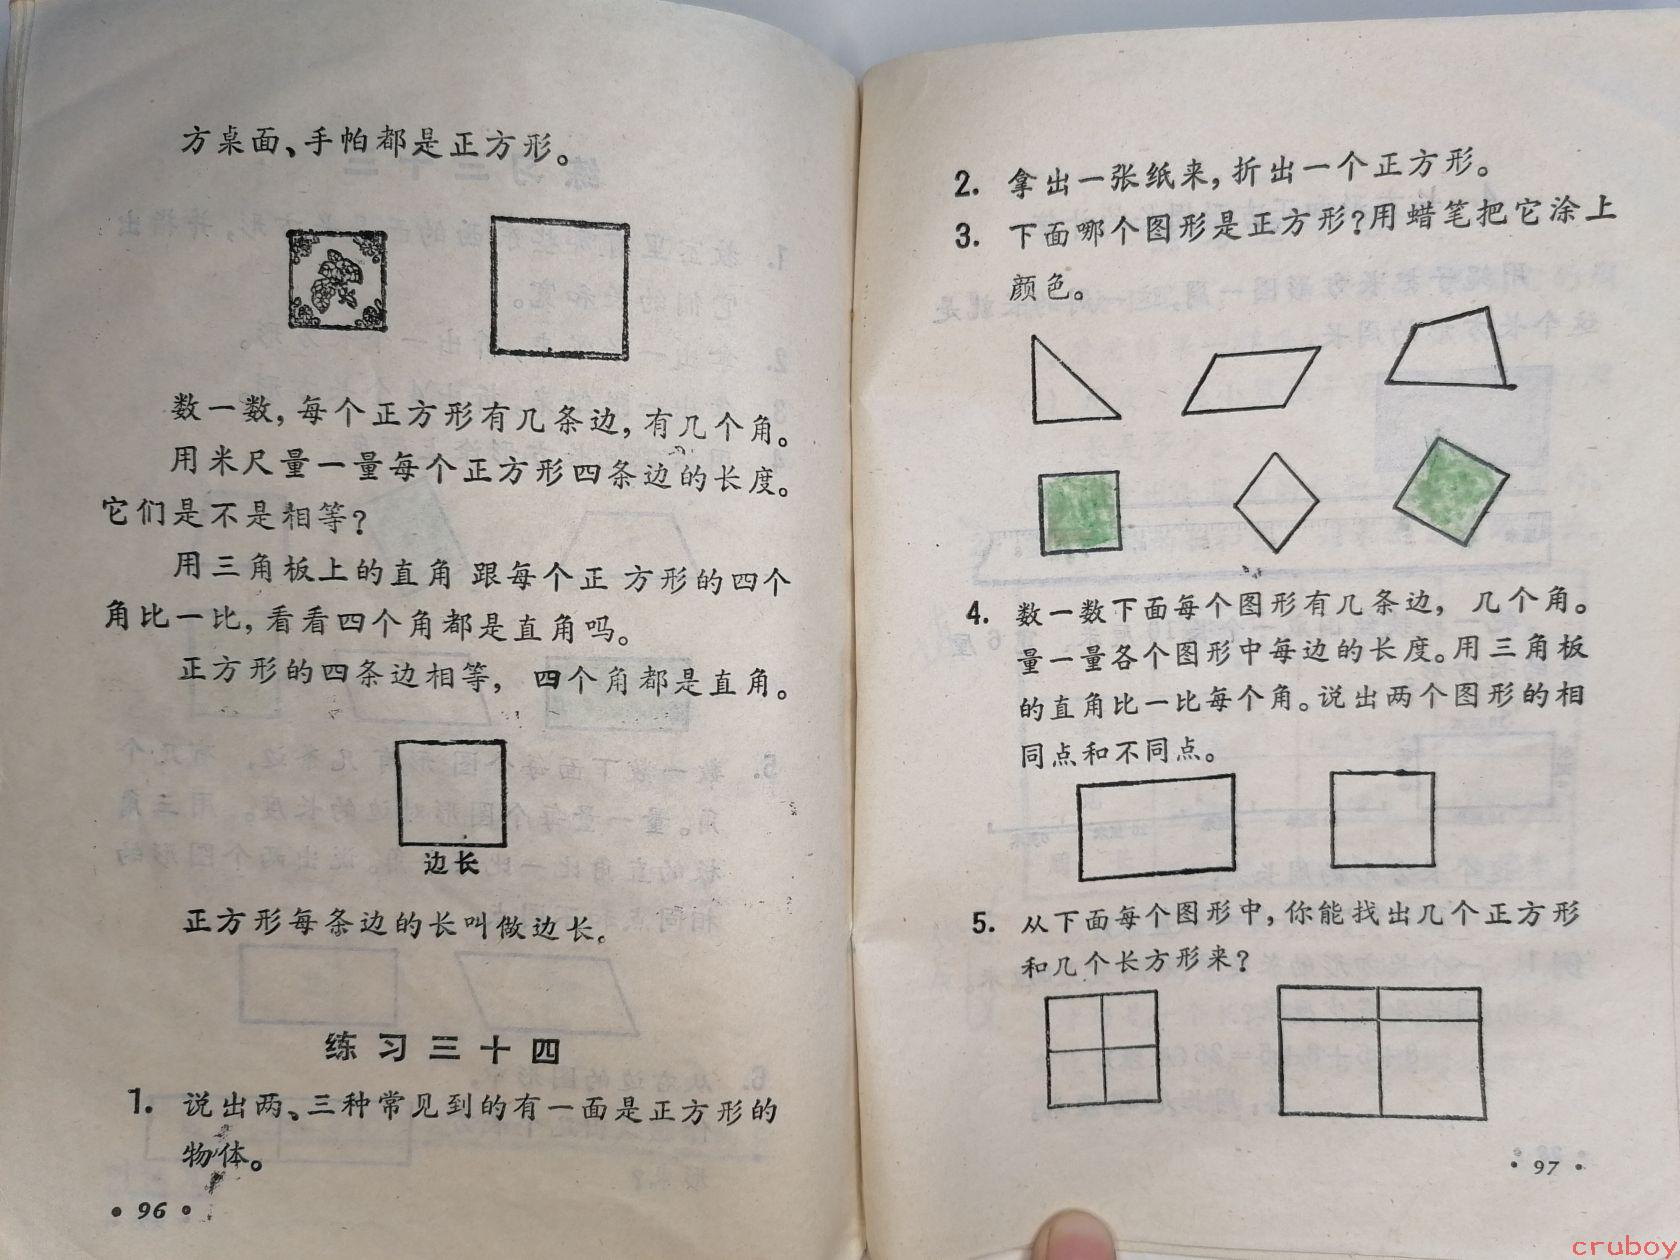 方桌面、手帕都是正方形。
数一数,每个正方形有几条边,有几个角。
用米尺量一量每个正方形四条边的长度。
它们是不是相等?
用三角板上的直角跟每个正方形的四个
角比一比,看看四个角都是直角吗。
正方形的四条边相等,四个角都是直角。
边长
正方形每条边的长叫做边长。
练习三十四
1. 说出两、三种常见到的有一面是正方形的
物体。
• 96 •
2. 拿出一张纸来,折出一个正方形。
3. 下面哪个图形是正方形?用蜡笔把它涂上
颜色。
4. 数一数下面每个图形有几条边,几个角。
量一量各个图形中每边的长度。用三角板
的直角比一比每个角。说出两个图形的相
同点和不同点。
5. 从下面每个图形中,你能找出几个正方形
和几个长方形来?
• 97 •
cruboy